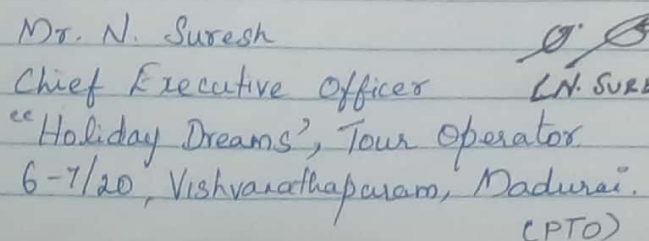 Mr. N. Suresh
Chief Executive Officer
(N. SURE
"Holiday Dreams', Tour Operator
6-7/20, Vishvanathapuram, Madurai.
(PTO)